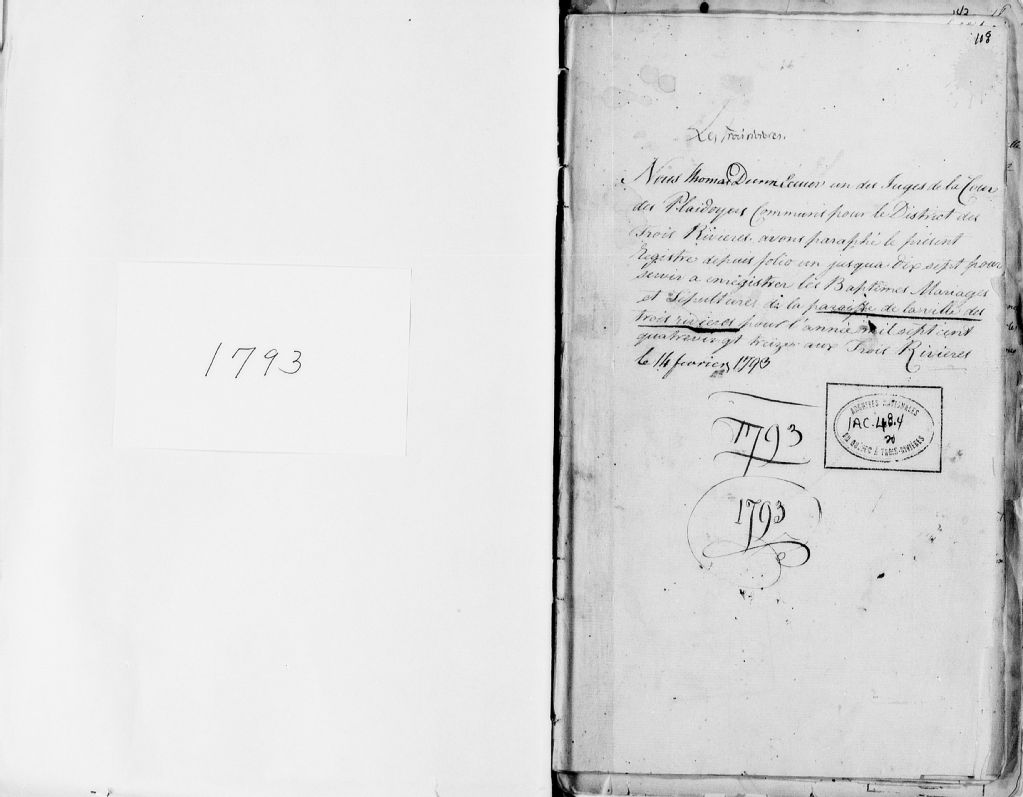 1793
118
Les trois rivieres.
Nous Thomas Dunn Ecuier un des Juges de la Cour
des Plaidoyers Communs pour le District des
Trois Rivieres avons paraphé le présent
Registre depuis folio un jusqua dix sept pour
servir a enrégistrer les Baptêmes Mariages
et Sépultures de la paroisse de la ville des
trois rivieres pour l'année mil sept cent
quatrevingt treize aux Trois Rivieres
le 14 fevrier 1793
1793
ARCHIVES NATIONALES
1AC-48.4
20
DU QUÉBEC À TROIS-RIVIÈRES
1793